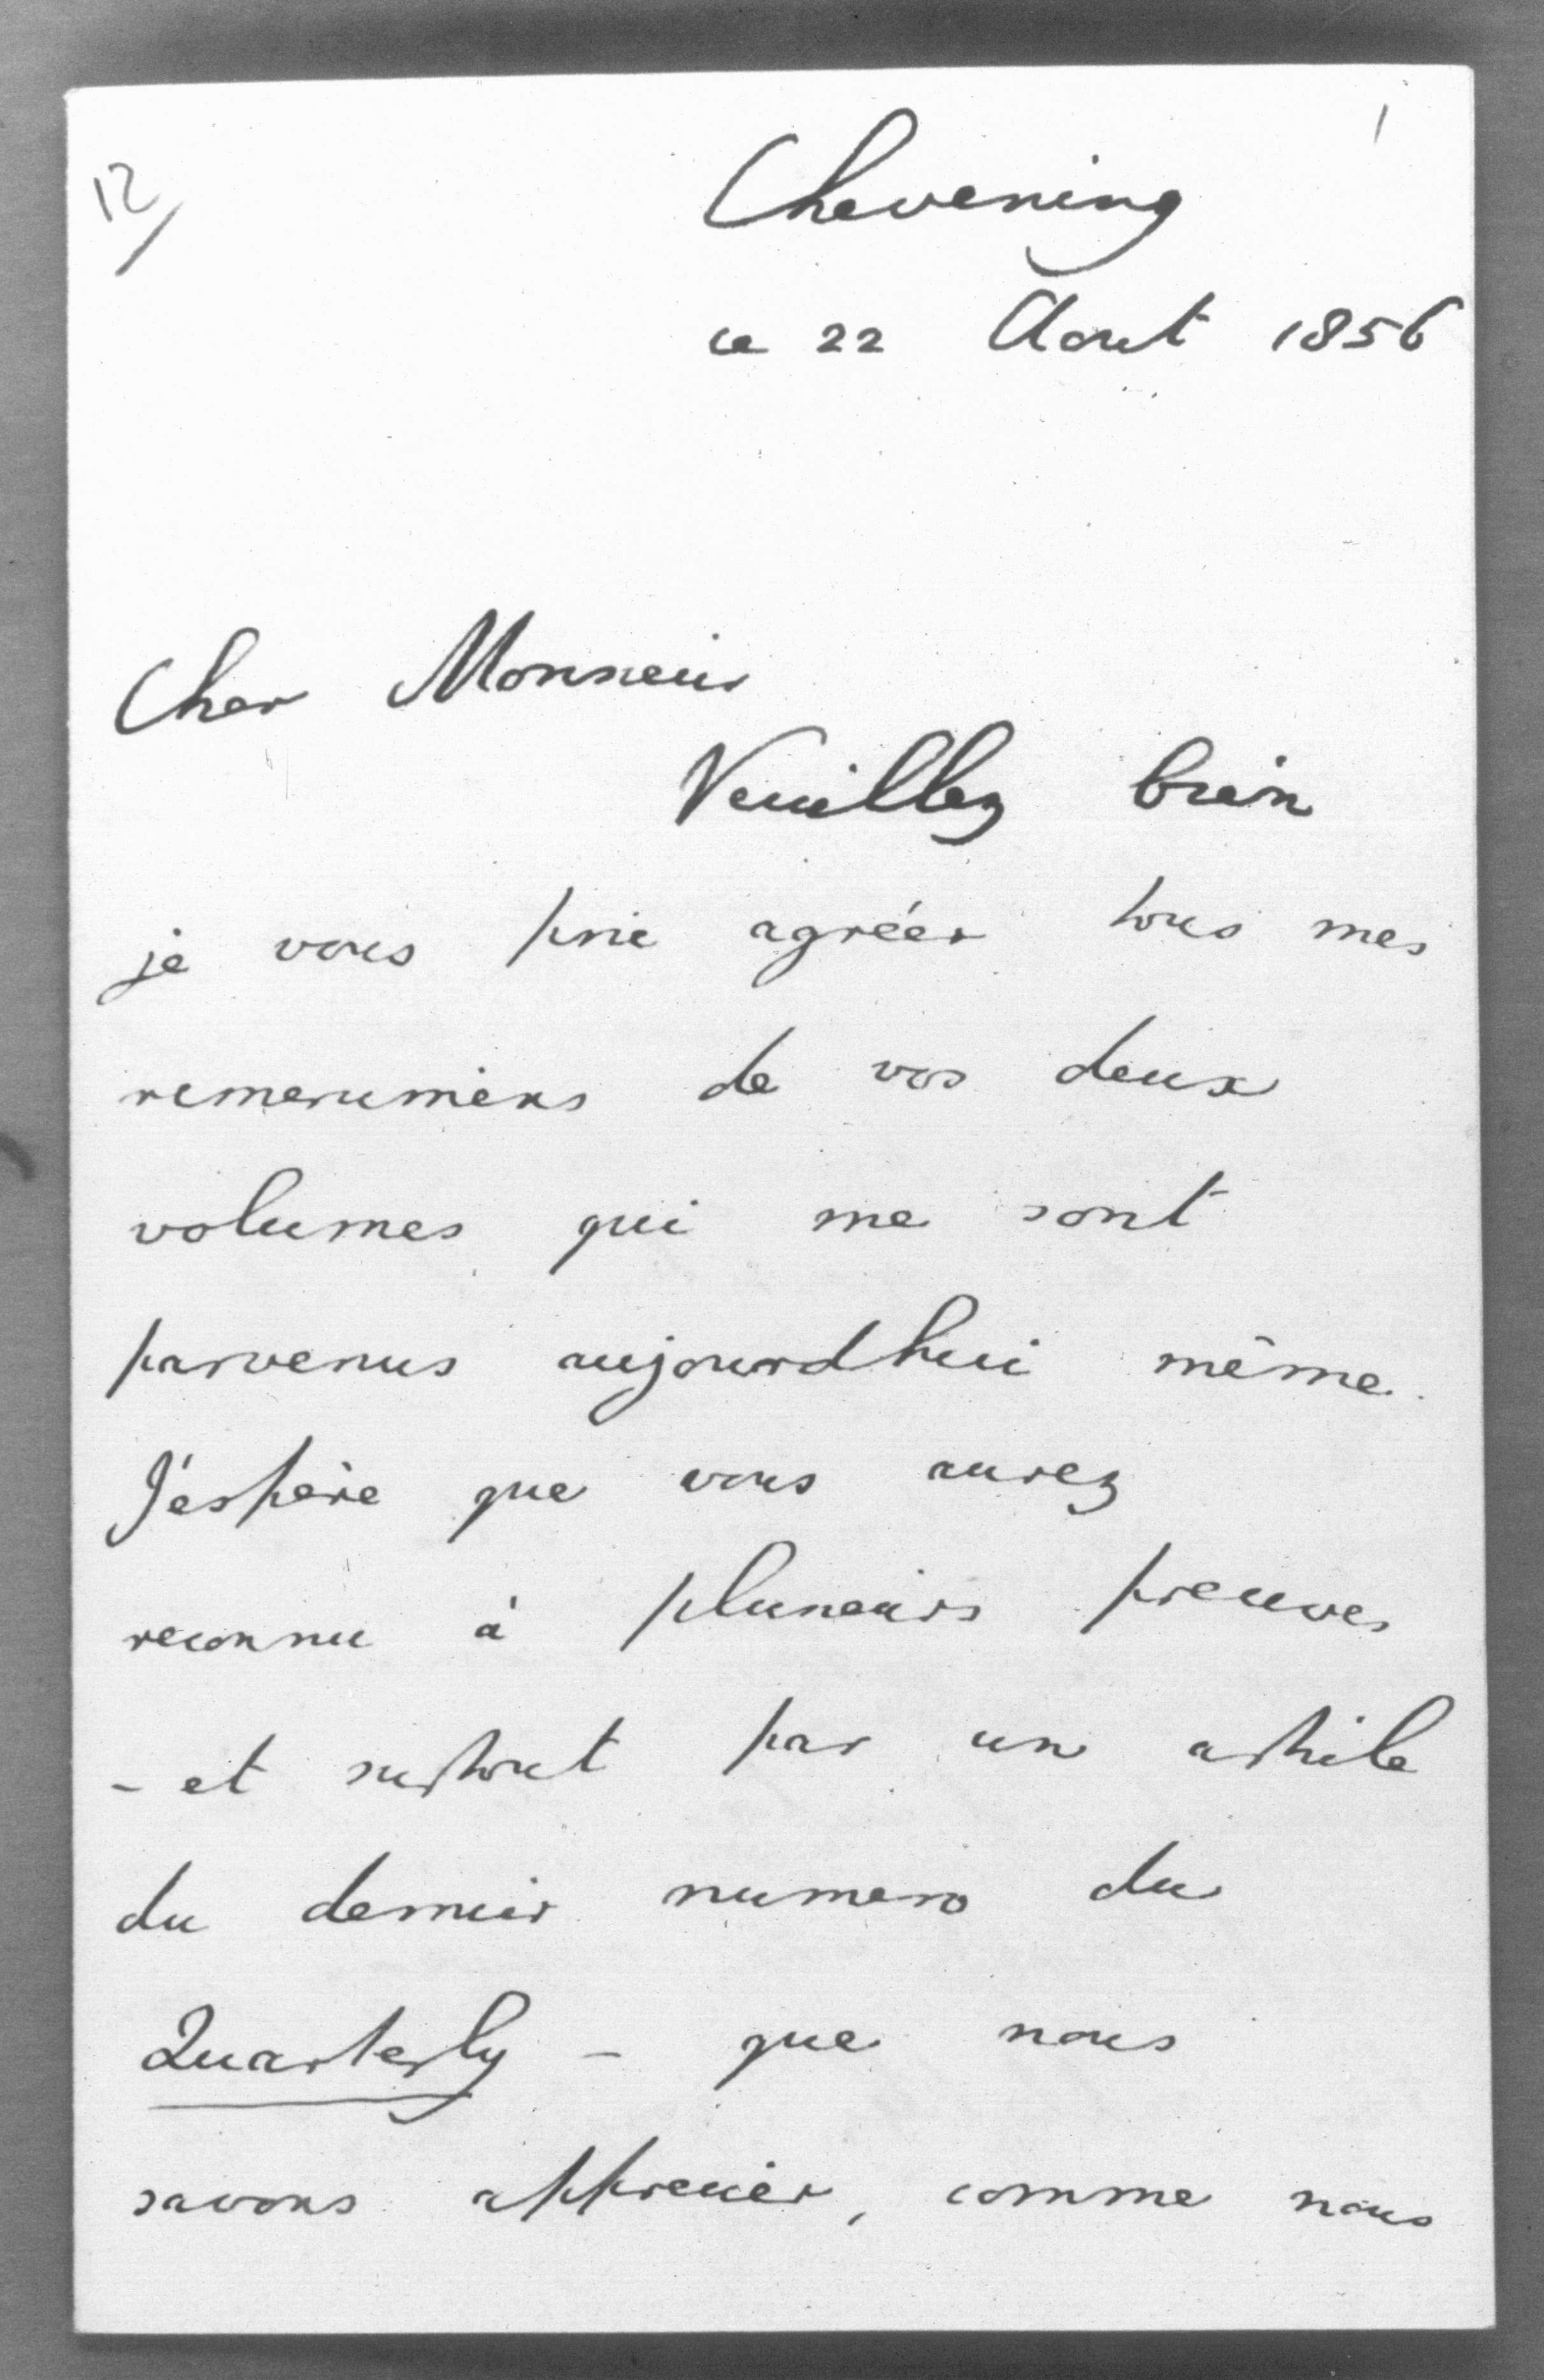 12/
1
Chevening
ce 22 Aout 1856
Cher Monsieur
Veuillez bien
je vous prie agréer tous mes
remercimens de vos deux
volumes qui me sont
parvenus aujourdhui même.
J'espère que vous aurez
reconnu à plusieurs preuves
- et surtout par un article
du dernier numero du
Quarterly - que nous
savons apprecier, comme nous